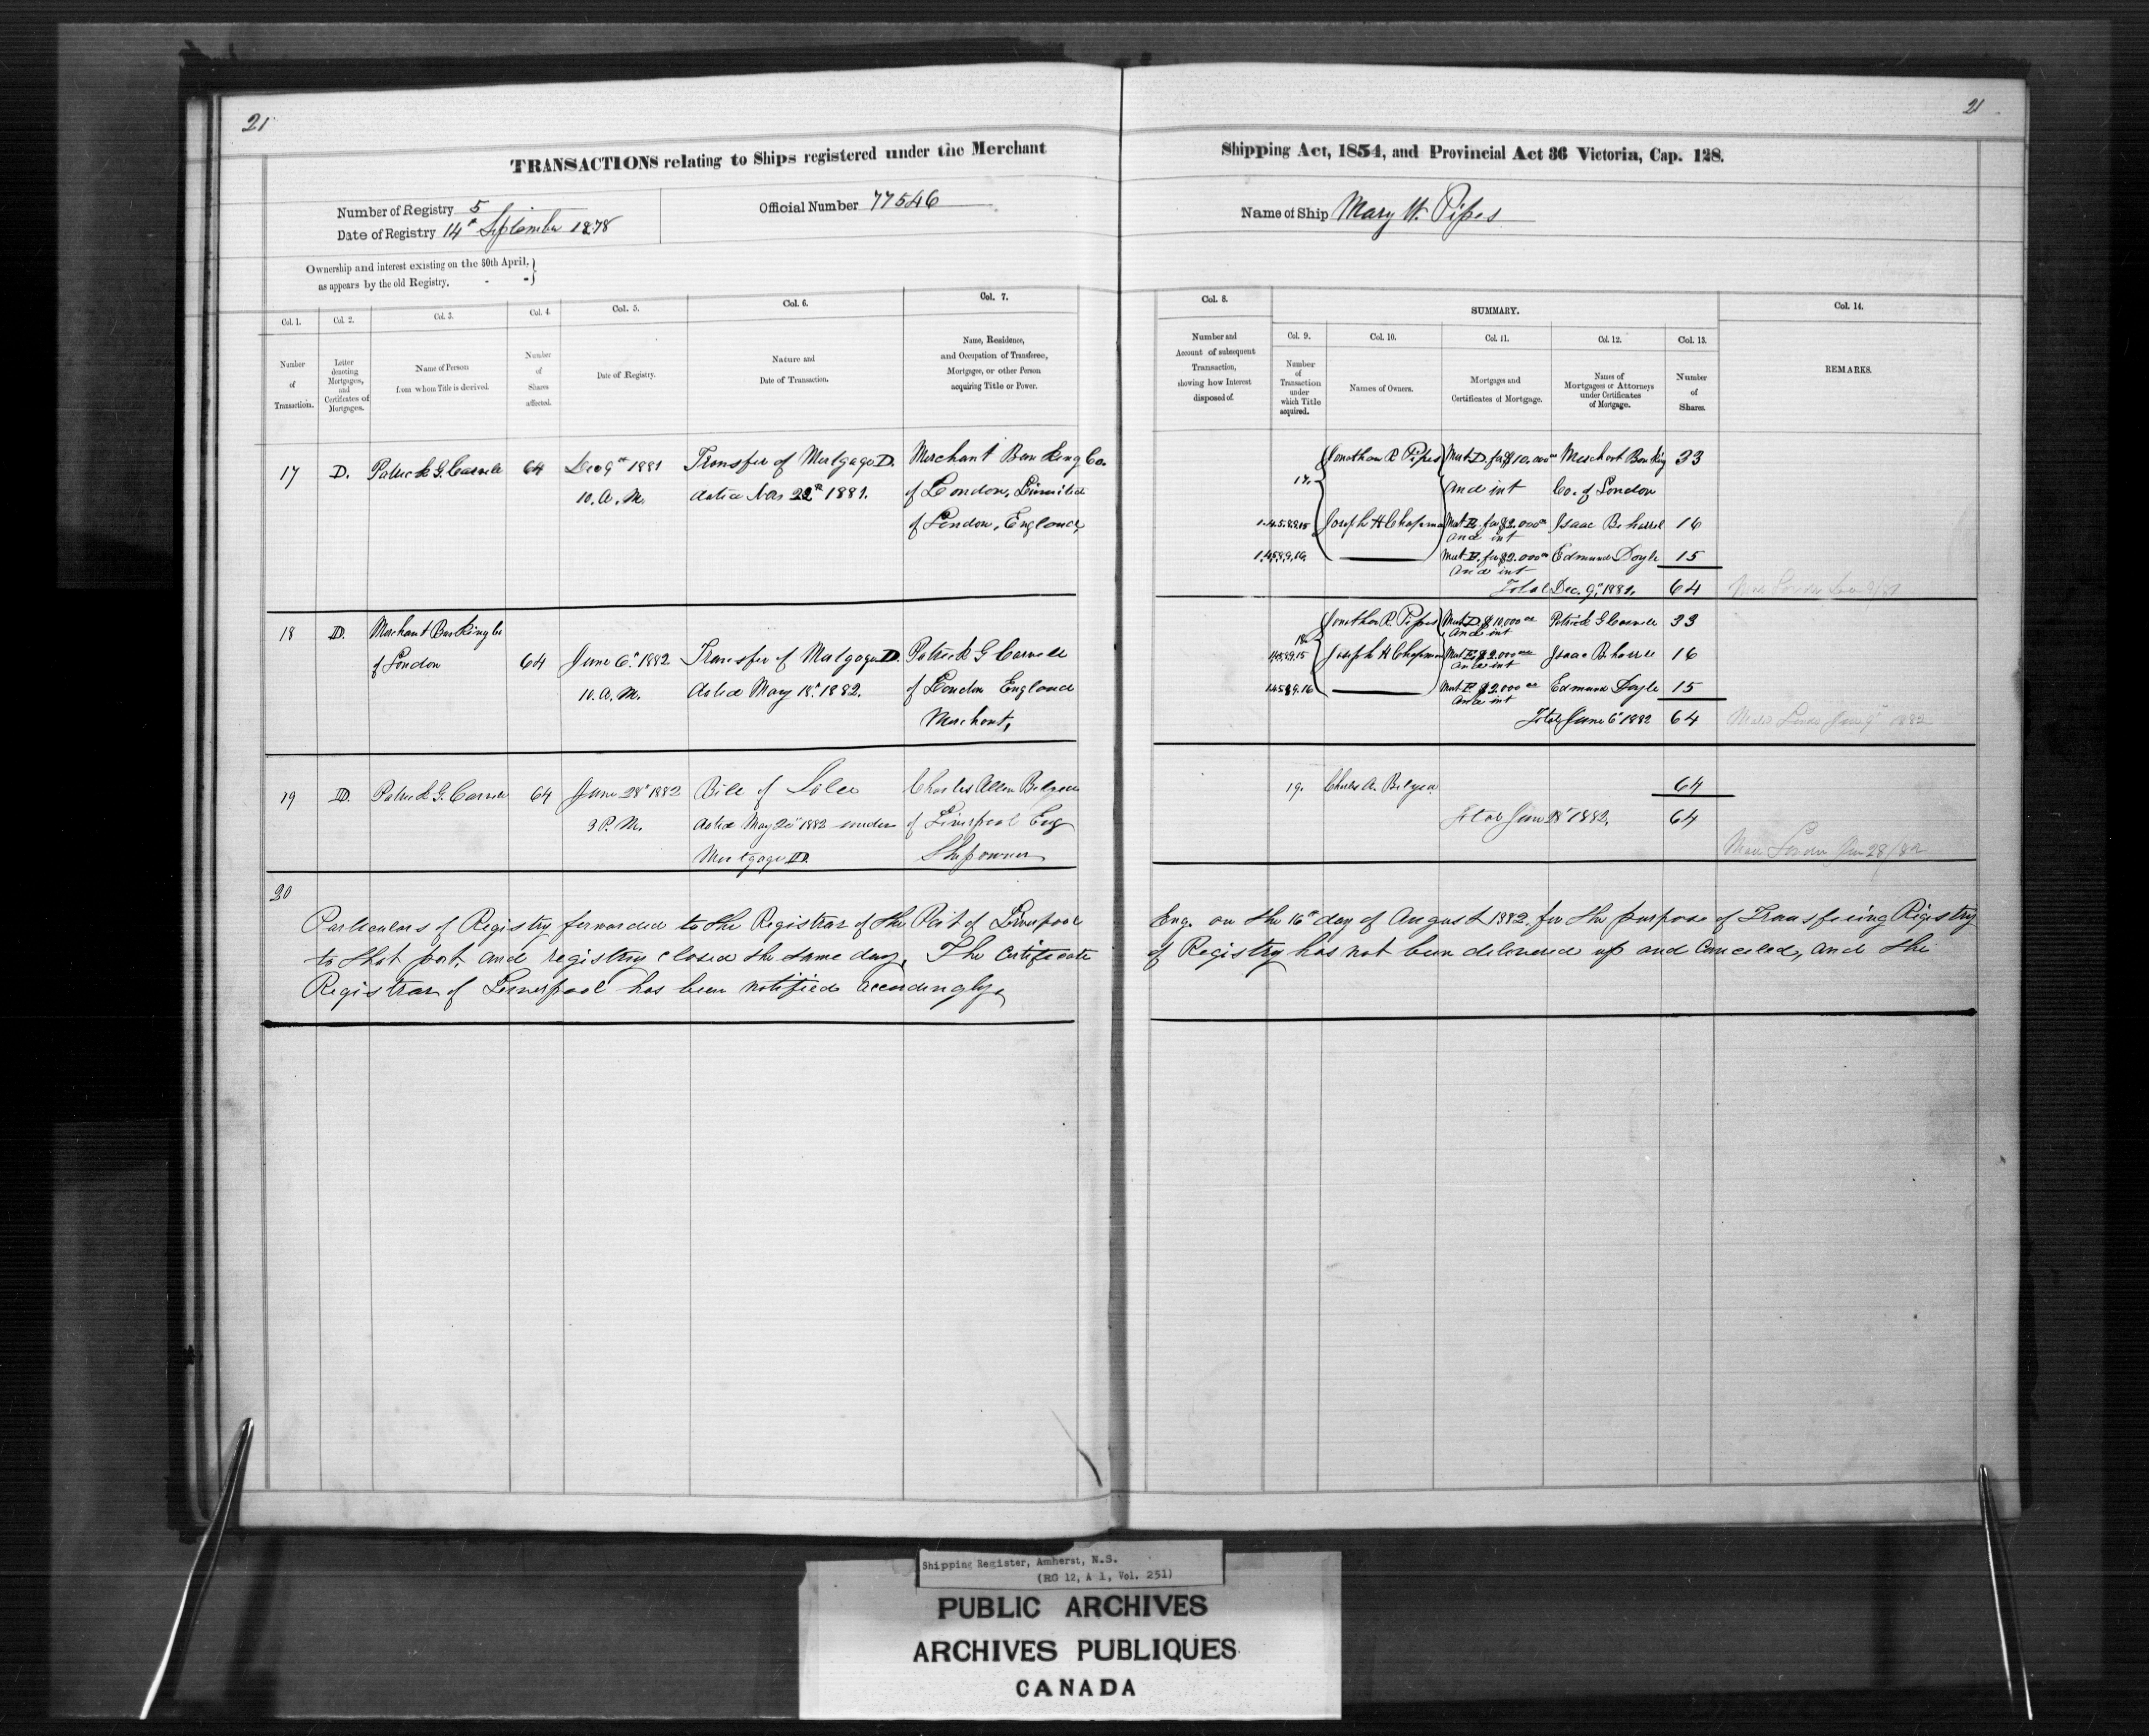 21
21
TRANSACTIONS relating to Ships registered under the Merchant Shipping Act, 1854, and Provincial Act 36 Victoria, Cap. 128.
Number of Registry 5
Date of Registry 14th September 1878
Official Number 77546
Name of Ship Mary W. Pipes
Ownership and interest existing on the 30th April,
as appears by the old Registry, - -
Col. 1. Col. 2. Col. 3. Col. 4. Col. 5. Col. 6. Col. 7.
Number of Transaction.
Letter denoting Mortgages, and Certificates of Mortgages.
Name of Person from whom Title is derived.
Number of Shares affected.
Date of Registry.
Nature and Date of Transaction.
Name, Residence, and Occupation of Transferee, Mortgagee, or other Person acquiring Title or Power.
Col. 8.
Number and Account of subsequent Transaction, showing how Interest disposed of.
SUMMARY.
Col. 9. Col. 10. Col. 11. Col. 12. Col. 13.
Number of Transaction under which Title acquired.
Names of Owners.
Mortgages and Certificates of Mortgage.
Names of Mortgagees or Attorneys under Certificates of Mortgage.
Number of Shares.
Col. 14.
REMARKS.
17 D. Patrick G. Carvill 64 Dec 9th 1881 Transfer of Mortgage D. Merchant Banking Co.
10. A. M. dated Nov 22nd 1881. of London, Limited
of London, England,
17. Jonathan R. Pipes Mort D. for $10,000 00 Merchant Banking 33
and int Co. of London
Joseph H Chapman Mort E. for $2,000 00 Isaac B 16
and int
Mort E. for $2,000 00 Edmund Doyle 15
and int
Total Dec. 9th, 1881. 64
18 D. Merchant Banking Co
of London 64 June 6th 1882 Transfer of Mortgage D. Patrick G Carvill
10. A. M. dated May 18th 1882. of London England
Merchant,
18. Jonathan R. Pipes Mort D $10,000 00 Patrick G Carvill 33
and int
Joseph H Chapman Mort E $2,000 00 Isaac B 16
and int
Mort E $2,000 00 Edmund Doyle 15
and int
Total June 6th 1882 64
19 D. Patrick G. Carvill 64 June 28th 1882 Bill of Sale Charles Allen Belyea
3 P. M. dated May 1882 under of Liverpool Eng
Mortgage D. Ship owner
19. Charles A. Belyea 64
Total June 28th 1882. 64
June 28/82
20
Particulars of Registry forwarded to the Registrar of the Port of Liverpool Eng. on the 16th day of August 1882 for the purpose of Transfering Registry
to that port, and registry closed the same day. The Certificate of Registry has not been delivered up and Canceled, and the
Registrar of Liverpool has been notified accordingly.
Shipping Register, Amherst, N.S.
(RG 12, A 1, Vol. 251)
PUBLIC ARCHIVES
ARCHIVES PUBLIQUES
CANADA